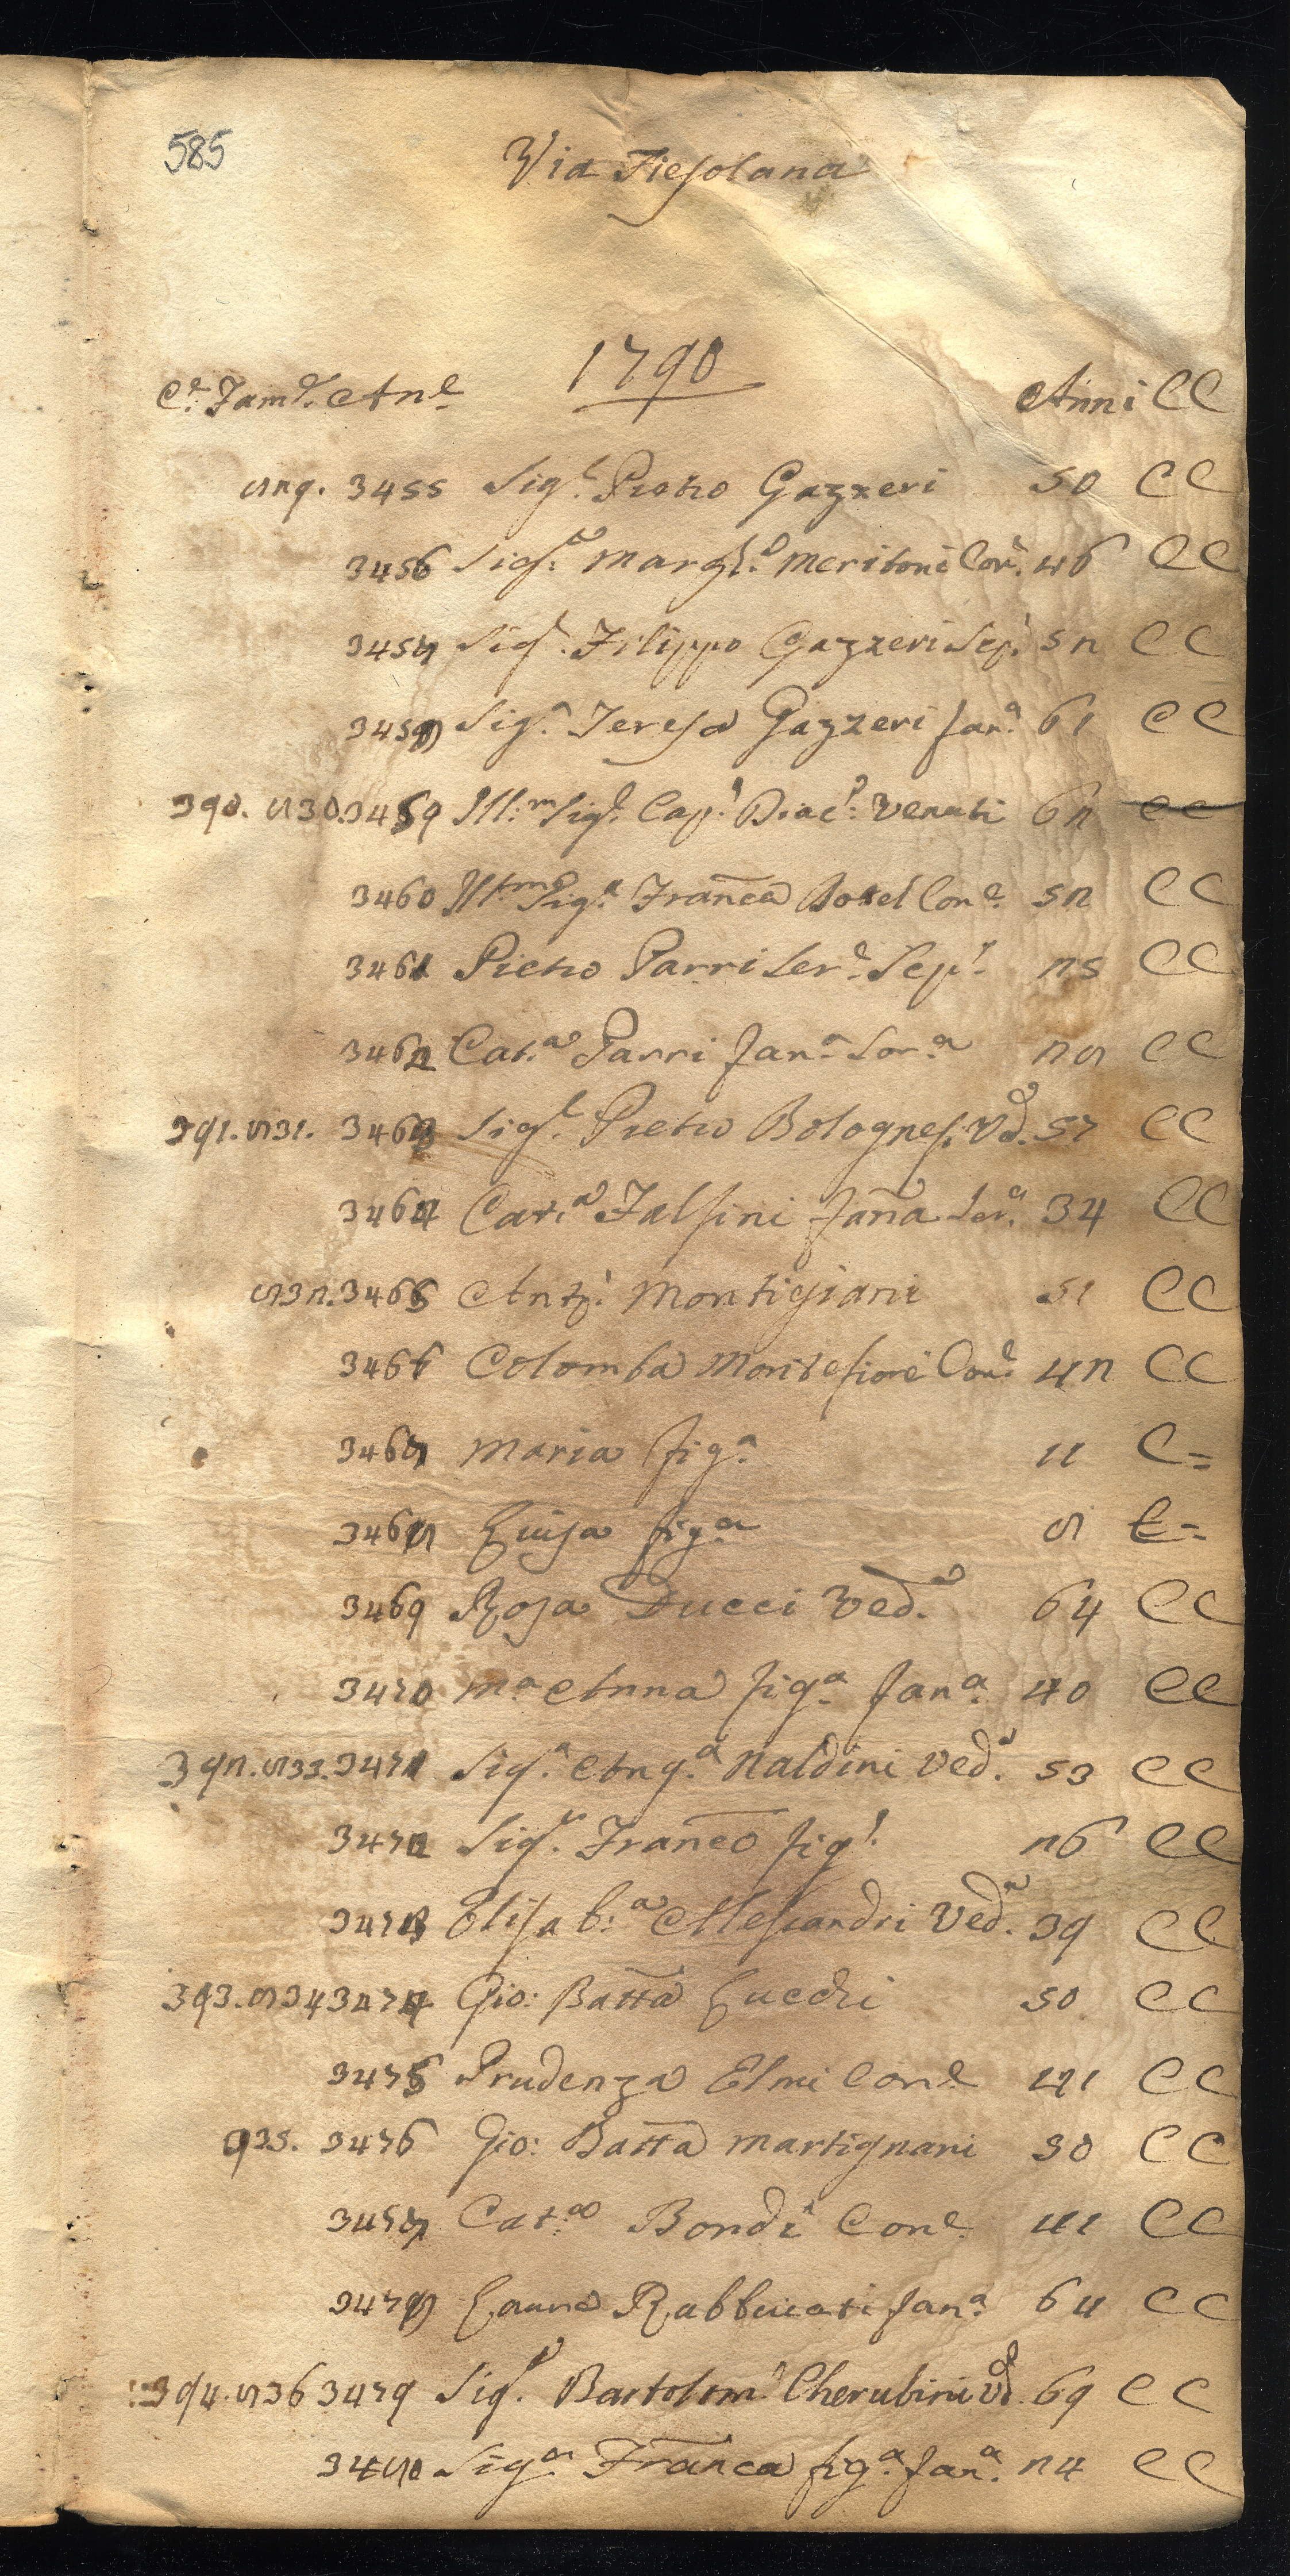 585
Via Fiesolana
1790
Ce. Fame. Ane Anni CC
829. 3455 Sigr. Pietro Gazzeri 50 CC
3456 Siga. Margta. Meritoni Cone. 46 CC
3457 Sigr. Filippo Gazzeri Sepr. 52 CC
3458 Siga. Teresa Gazzeri fana. 61 CC
390. 830. 3459 Ill:m Sigr. Capo. Diaco. Venuti 62 CC
3460 Illma Siga. Franca Cone. 52 CC
3461 Pietro Parri Sere. Sepr. 25 CC
3462 Cata. Parri fana. Sora 28 CC
391. 831. 3463 Sigr. Pietro Bolognesi Vdo. 57 CC
3464 Cata. Falsini fana Sera. 34 CC
832. 3465 Anto. Montigiani 51 CC
3466 Colomba Montefiori Cone. 42 CC
3467 Maria figa. 11 C=
3468 Luisa figa. 8 C=
3469 Rosa Ducci Veda. 64 CC
3470 Ma. Anna figa. fana. 40 CC
392. 833. 3471 Siga. Anga. Naldini Veda. 53 CC
3472 Sigr. Franco figo. 26 CC
3473 Elisaba. Alessandri Veda. 39 CC
393. 834 3474 Gio: Batta Lucchi 50 CC
3475 Prudenza Elmi Cone. 41 CC
935. 3476 Gio: Batta Martignani 50 CC
3477 Cata. Bondi Cone. 41 CC
3478 Laura Rabbuiati fana. 64 CC
394. 836 3479 Sigr. Bartolomo. Cherubini Vdo. 69 CC
3480 Siga. Franca figa. fana. 24 CC